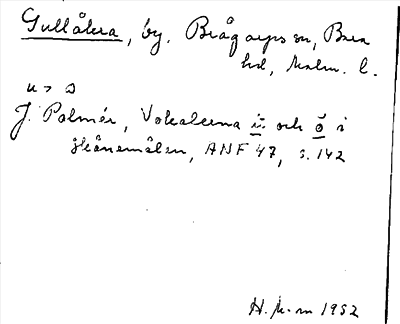 Gullåkra, by. Brågarps sn, Bara
hd, Malm. l.
u > ɔ
J. Palmér, Vokalerna ŭ och ŏ i
skånemålen, ANF 47, s. 142
H. K-m 1952